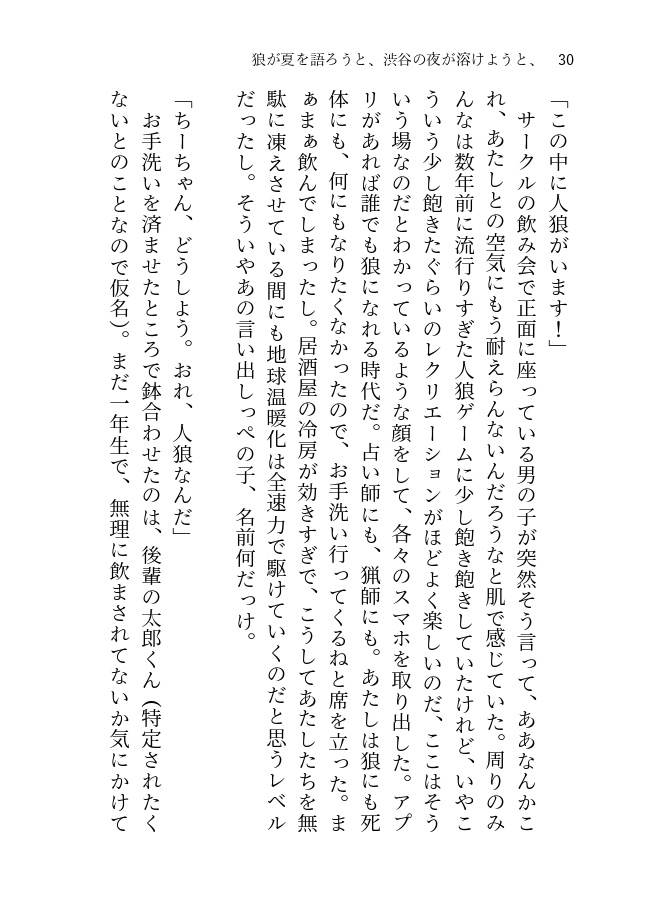 狼が夏を語ろうと、渋谷の夜が溶けようと、 30
「この中に人狼がいます！」
　サークルの飲み会で正面に座っている男の子が突然そう言って、ああなんかこ
れ、あたしとの空気にもう耐えらんないんだろうなと肌で感じていた。周りのみ
んなは数年前に流行りすぎた人狼ゲームに少し飽き飽きしていたけれど、いやこ
ういう少し飽きたぐらいのレクリエーションがほどよく楽しいのだ、ここはそう
いう場なのだとわかっているような顔をして、各々のスマホを取り出した。アプ
リがあれば誰でも狼になれる時代だ。占い師にも、猟師にも。あたしは狼にも死
体にも、何にもなりたくなかったので、お手洗い行ってくるねと席を立った。ま
ぁまぁ飲んでしまったし。居酒屋の冷房が効きすぎで、こうしてあたしたちを無
駄に凍えさせている間にも地球温暖化は全速力で駆けていくのだと思うレベル
だったし。そういやあの言い出しっぺの子、名前何だっけ。
「ちーちゃん、どうしよう。おれ、人狼なんだ」
　お手洗いを済ませたところで鉢合わせたのは、後輩の太郎くん（特定されたく
ないとのことなので仮名）。まだ一年生で、無理に飲まされてないか気にかけて